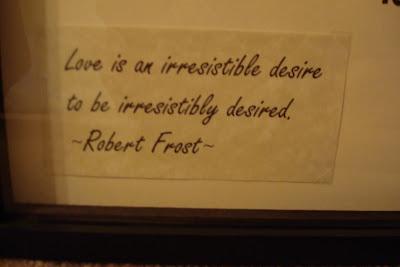 Love is an irresistible desire
to be irresistibly desired.
~Robert Frost~